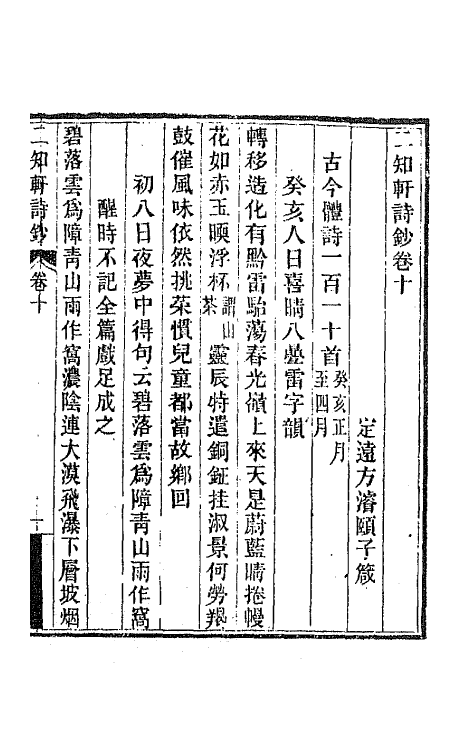 二知軒詩鈔卷十
定遠方濬頤子箴
古今體詩一百一十首癸亥正月至四月
癸亥人日喜晴八疊雷字韻
轉移造化有黔雷駘蕩春光嶺上來天是蔚藍晴捲幔
花如赤玉暝浮杯謂山茶靈辰特遣銅鉦挂淑景何勞羯
鼓催風味依然挑菜慣兒童都當故鄉回
初八日夜夢中得句云碧落雲爲障靑山雨作窩
醒時不記全篇戲足成之
碧落雲爲障靑山雨作窩濃陰連大漠飛瀑下層坡烟
二知軒詩鈔
卷十
一